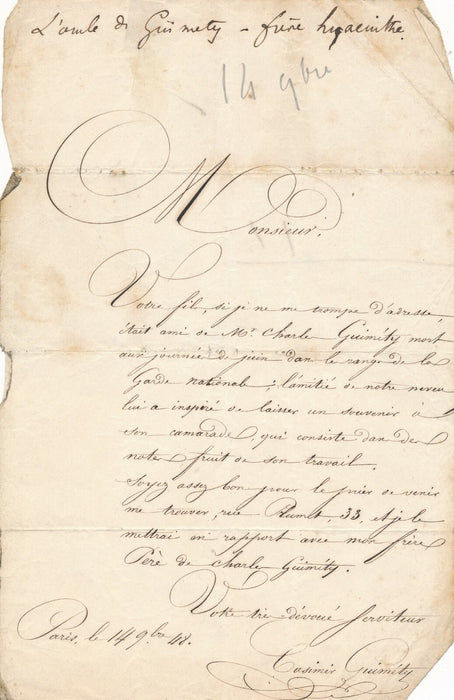 L'oncle de Guimety - frère hyacinthe.
14 9bre
Monsieur,
Votre fils, si je ne me trompe d'adresse,
était ami de Mr. Charles Guiméty mort
aux journées de juin dans les rangs de la
Garde nationale; l'amitié de notre neveu
lui a inspiré de laisser un souvenir à
son camarade, qui consiste dans des
notes fruit de son travail.
Soyez assez bon pour le prier de venir
me trouver, rue Plumet, 33, et je le
mettrai en rapport avec mon frère
Père de Charles Guiméty.
Votre très dévoué serviteur
Paris, le 14 9bre 48.
Casimir Guiméty